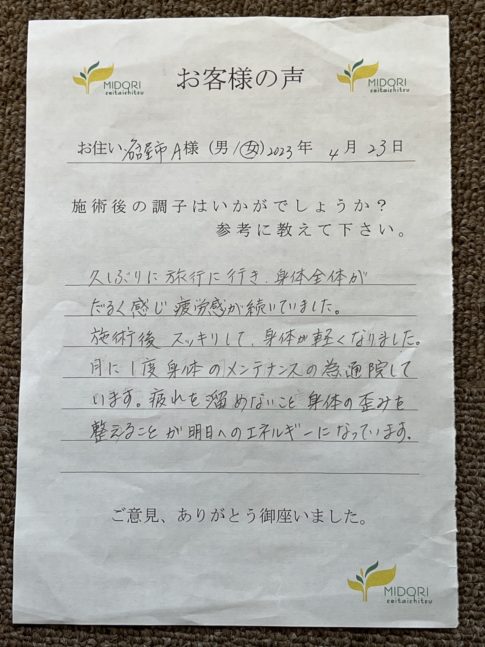 MIDORI
seitaichitsu
お客様の声
MIDORI
seitaichitsu
お住い 名古屋市 A様 (男/女) 2023年 4月 23日
施術後の調子はいかがでしょうか?
参考に教えて下さい。
久しぶりに旅行に行き、身体全体が
だるく感じ疲労感が続いていました。
施術後 スッキリして、身体が軽くなりました。
月に1度身体のメンテナンスの為通院して
います。疲れを溜めないこと 身体の歪みを
整えることが明日へのエネルギーになっています。
ご意見、ありがとう御座いました。
MIDORI
seitaichitsu